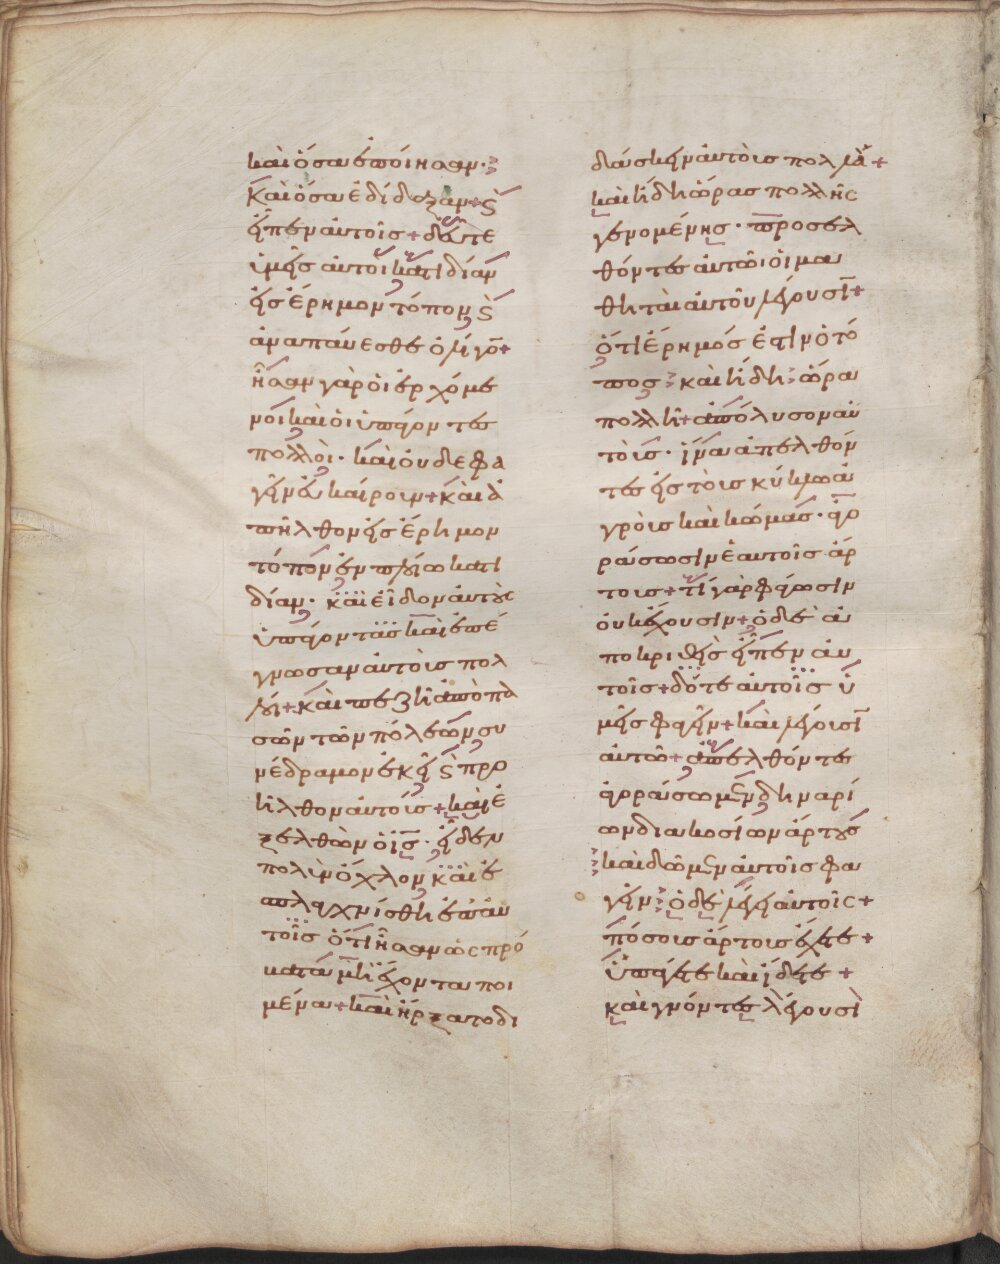 καὶ ὅσα ἐποίησαν·
Καὶ ὅσα ἐδίδαξαν + ϛ̀
εἶπεν αὐτοῖς + δεῦτε
ὑμεῖς αὐτοὶ κατιδίαν
εἰς ἔρημον τόπον ϛ̀
ἀναπαύεσθε ὀλίγο̅ +
ἦσαν γὰρ οἱ ἐρχόμε
νοι καὶ οἱ ὑπάγοντες
πολλοὶ· καὶ οὐδε φα
γεῖν εὐκαίρουν + καὶ ἀ
πῆλθον εἰς ἔρημον
τόπον ἐν πλοίω κατι
δίαν· καὶ εἶδον αὐτοὺς
ὑπάγοντας καὶ ἐπέ
γνωσαν αὐτοὺς πολ
λοι + καὶ πεζῆ ἀπὸ πα
σῶν τῶν πόλεων συ
νέδραμον ἐκεῖ ϛ̀ προ
ῆλθον αὐτοὺς + καὶ ἐ
ξελθὼν ὁ ι̅ς̅· εἶδεν
πολὺν ὄχλον καὶ ἐ
σπλαγχνίσθη ἐπ αὐ
τοῖς ὅτι ἦσαν ὡς πρό
βατα μὴ ἔχοντα ποι
μένα + καὶ ἤρξατο δι
δάσκειν αὐτοὺς πολλὰ +
καὶ ἤδη ὥρας πολλῆς
γενομένης· προσελ
θόντες αὐτῶ οἱ μα
θηταὶ αὐτοῦ λέγουσι̅ +
ὅτι ἔρημός ἐστιν ὁ τό
πος καὶ ἤδη ὥρα
πολλὴ + ἀπόλυσον αὐ
τοὺς· ἵνα ἀπελθόν
τες εἰς τοὺς κύκλω ἀ
γροὺς καὶ κώμας· ἀγο
ράσωσιν ἑαυτοῖς ἄρ
τους + τί γὰρ φάγωσιν
οὐκ ἔχουσιν + ὁ δὲ ἀ
ποκριθεὶς εἶπεν αὐ
τοῖς + δότε αὐτοῖς ὑ
μεῖς φαγεῖν + καὶ λέγουσι̅
αὐτῶ + ἀπελθόντες
ἀγοράσωμεν δηναρί
ων διακοσίων ἄρτους
καὶ δῶμεν αὐτοῖς φα
γεῖν ὁ δὲ λέγει αὐτοῖς +
πόσους ἄρτους ἔχετε +
ὑπάγετε καὶ ἴδετε +
καὶ γνόντες λέγουσι